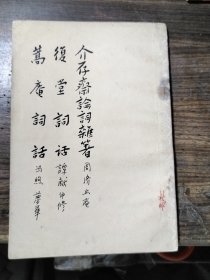 介存齋論詞雜著 周濟止庵
復堂詞話 譚獻仲修
蒿庵詞話 馮煦夢華